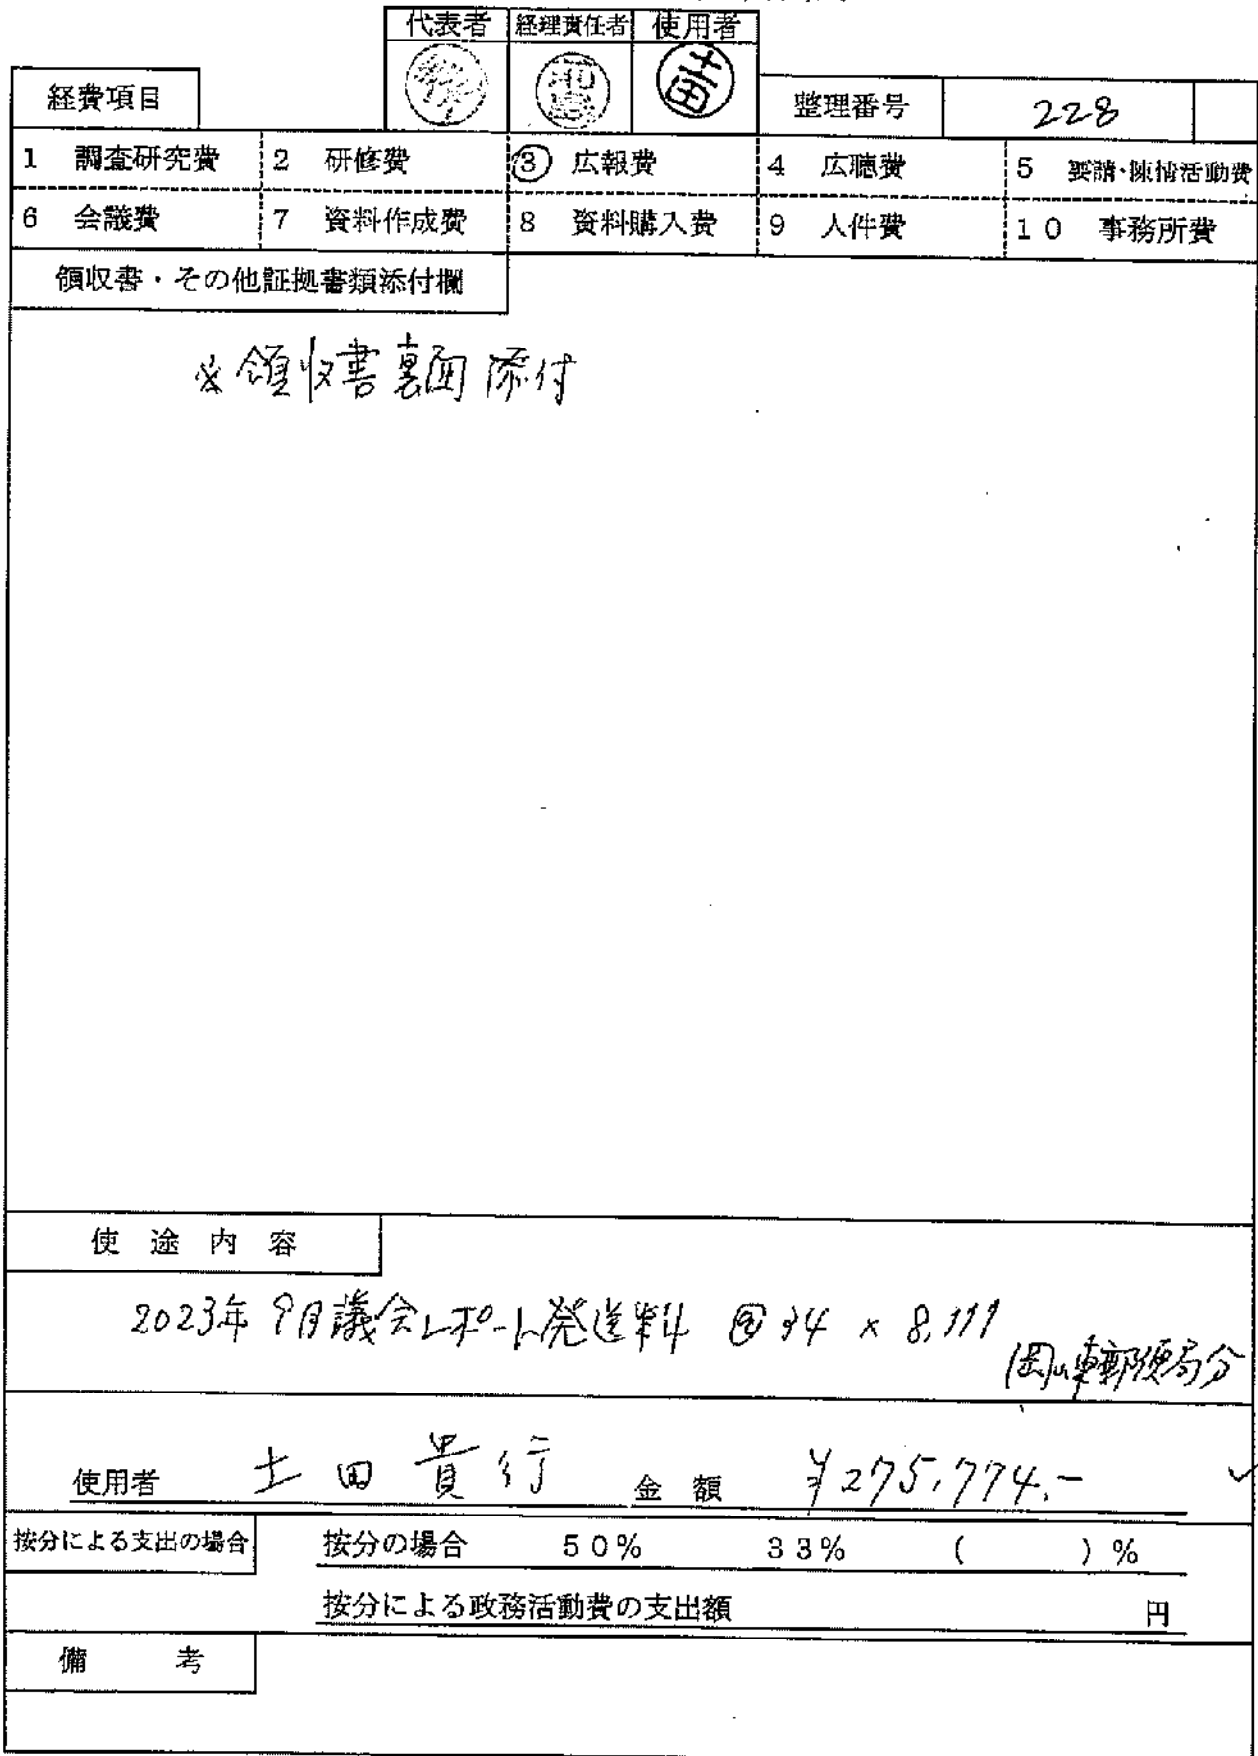 代表者 経理責任者 使用者
土田
経費項目 整理番号 228
1 調査研究費 2 研修費 ③ 広報費 4 広聴費 5 要請・陳情活動費
6 会議費 7 資料作成費 8 資料購入費 9 人件費 10 事務所費
領収書・その他証拠書類添付欄
※領収書裏面添付
使途内容
2023年9月議会レポート発送料 @34 × 8,111
(岡山東郵便局分
使用者 土田貴行 金額 ¥275,774.-
按分による支出の場合 按分の場合 50% 33% ( )%
按分による政務活動費の支出額 円
備考